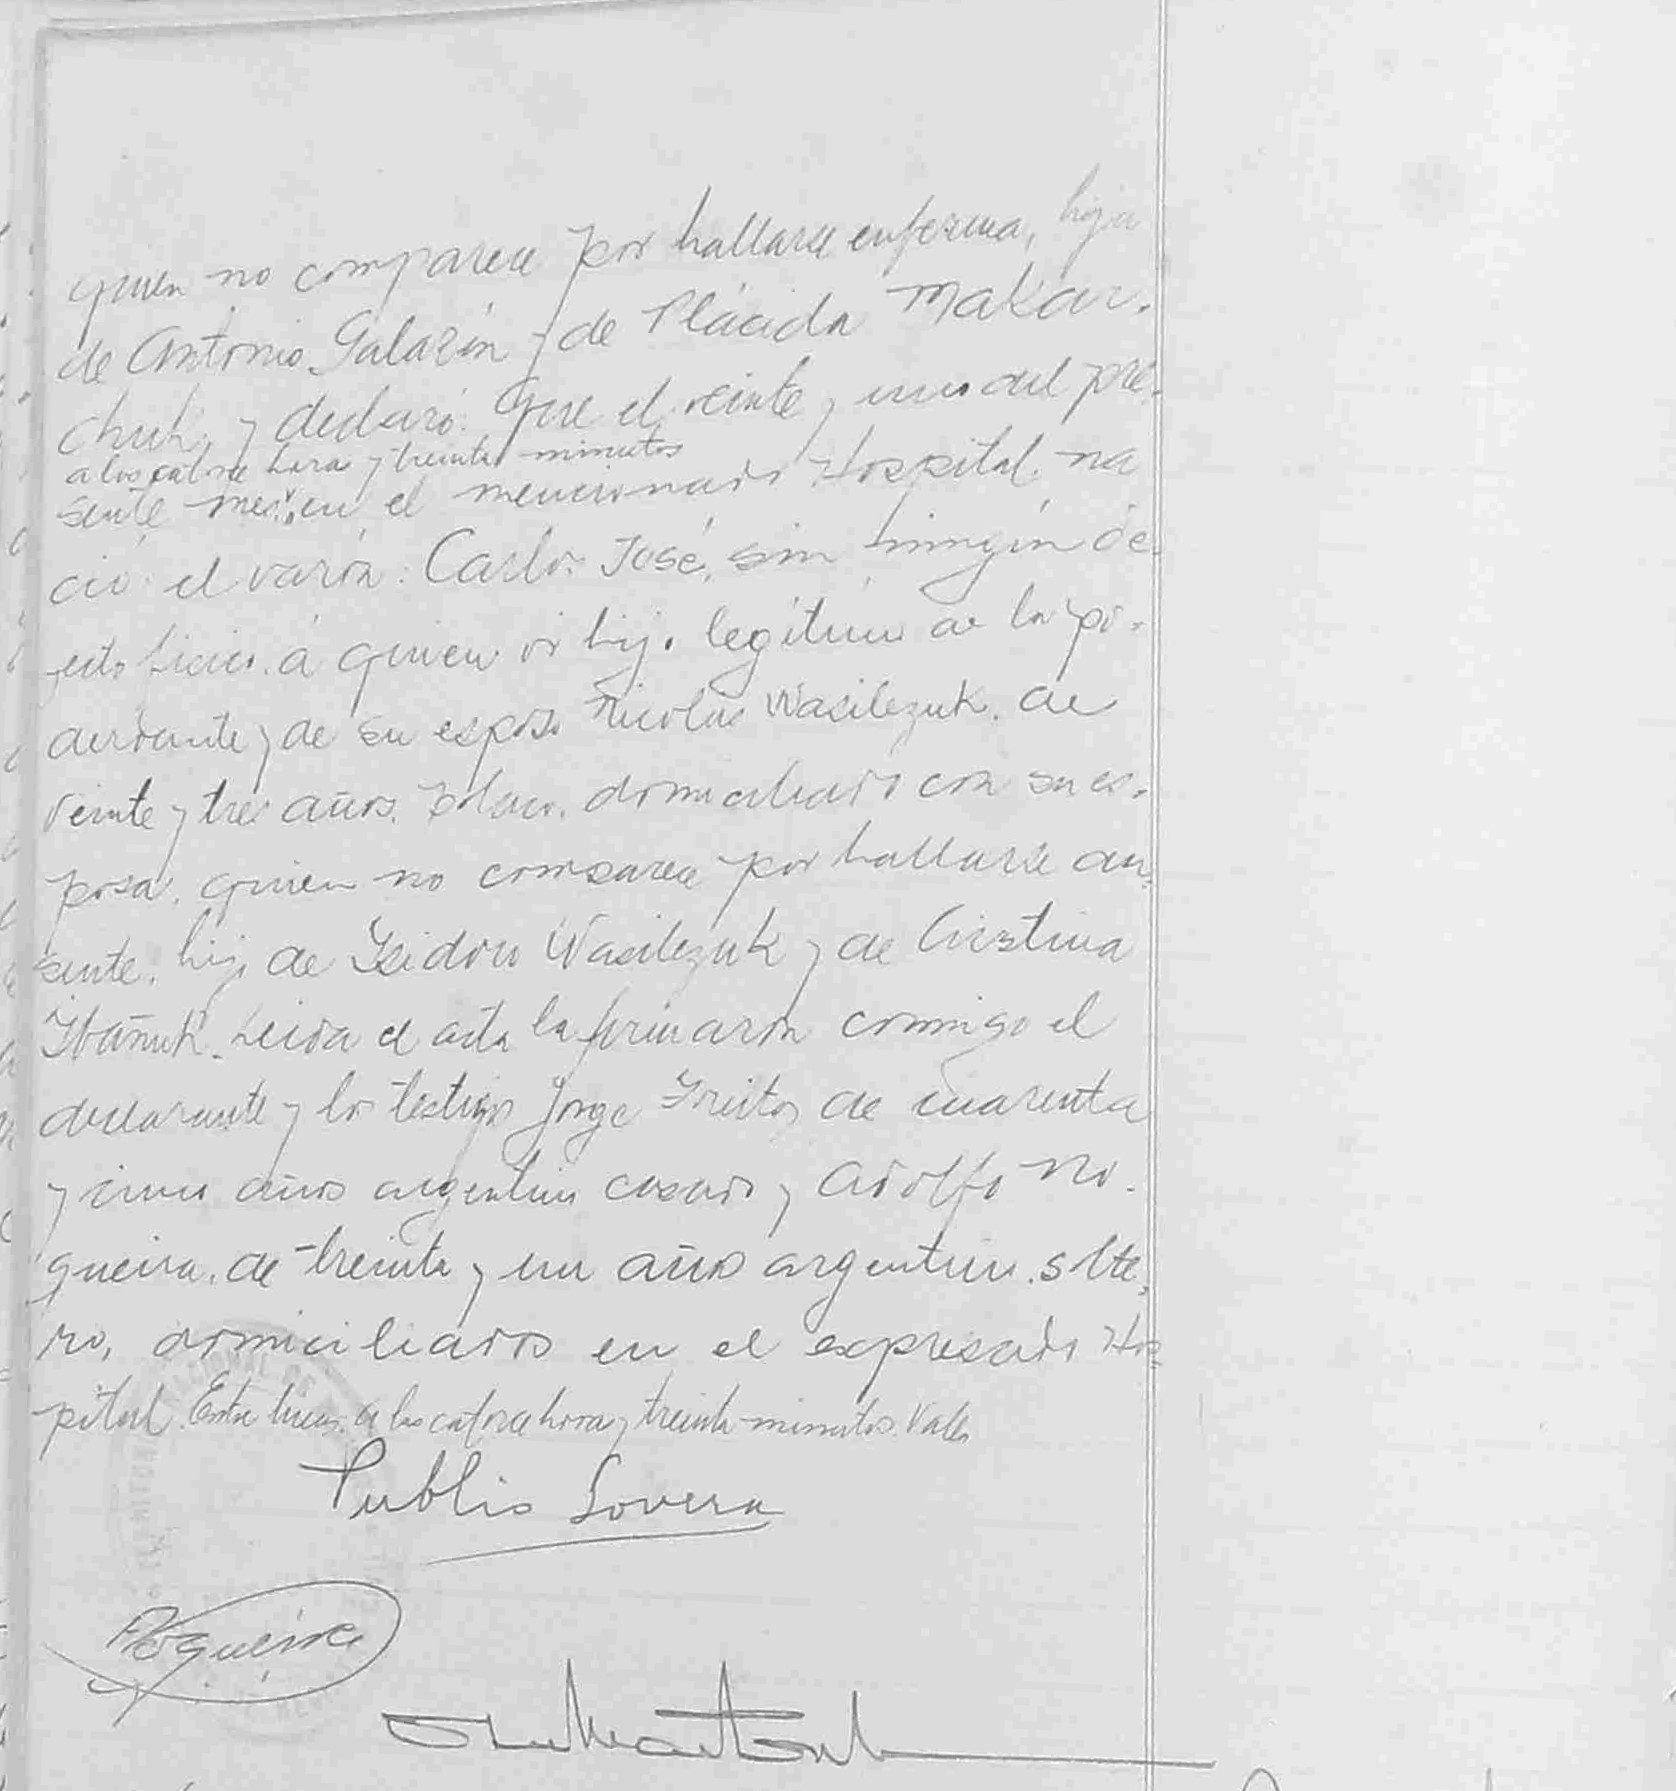 quien no comparece por hallarse enferma, hija
de Antonio Galazin y de Plácida Makar-
chuk, y declaró: Que el veinte y uno del pre-
a las catorce horas y treinta minutos
sente mes, en el mencionado Hospital, na
ció el varón: Carlos José, sin ningún de-
fecto físico, á quien vi hijo legítimo de la po-
derdante y de su esposo Nicolas Wasilezuk, de
veinte y tres años, polaco, domiciliado con su es-
posa, quien no comparece por hallarse au-
sente, hijo de Isidoro Wasilezuk y de Cristina
Ibañuk. Leida el acta la firmaron conmigo el
declarante y los testigos Jorge Freitos de cuarenta
y cinco años argentino casado y Adolfo No-
gueira, de treinta y un años argentino, solte-
ro, domiciliados en el expresado Hos-
pital. Entre lineas: a las catorce horas y treinta minutos. Vale
Publio Lovera
ANogueira